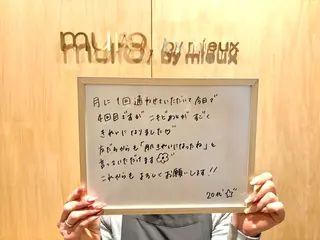 muro. by mieux
月に1回通わせていただいて今日で
4回目ですが ニキビあとが すごく
きれいになりました♡
友だちからも「肌きれいになったね」と
言っていただけます☆
これからも よろしくお願いします!!
20代 ☆